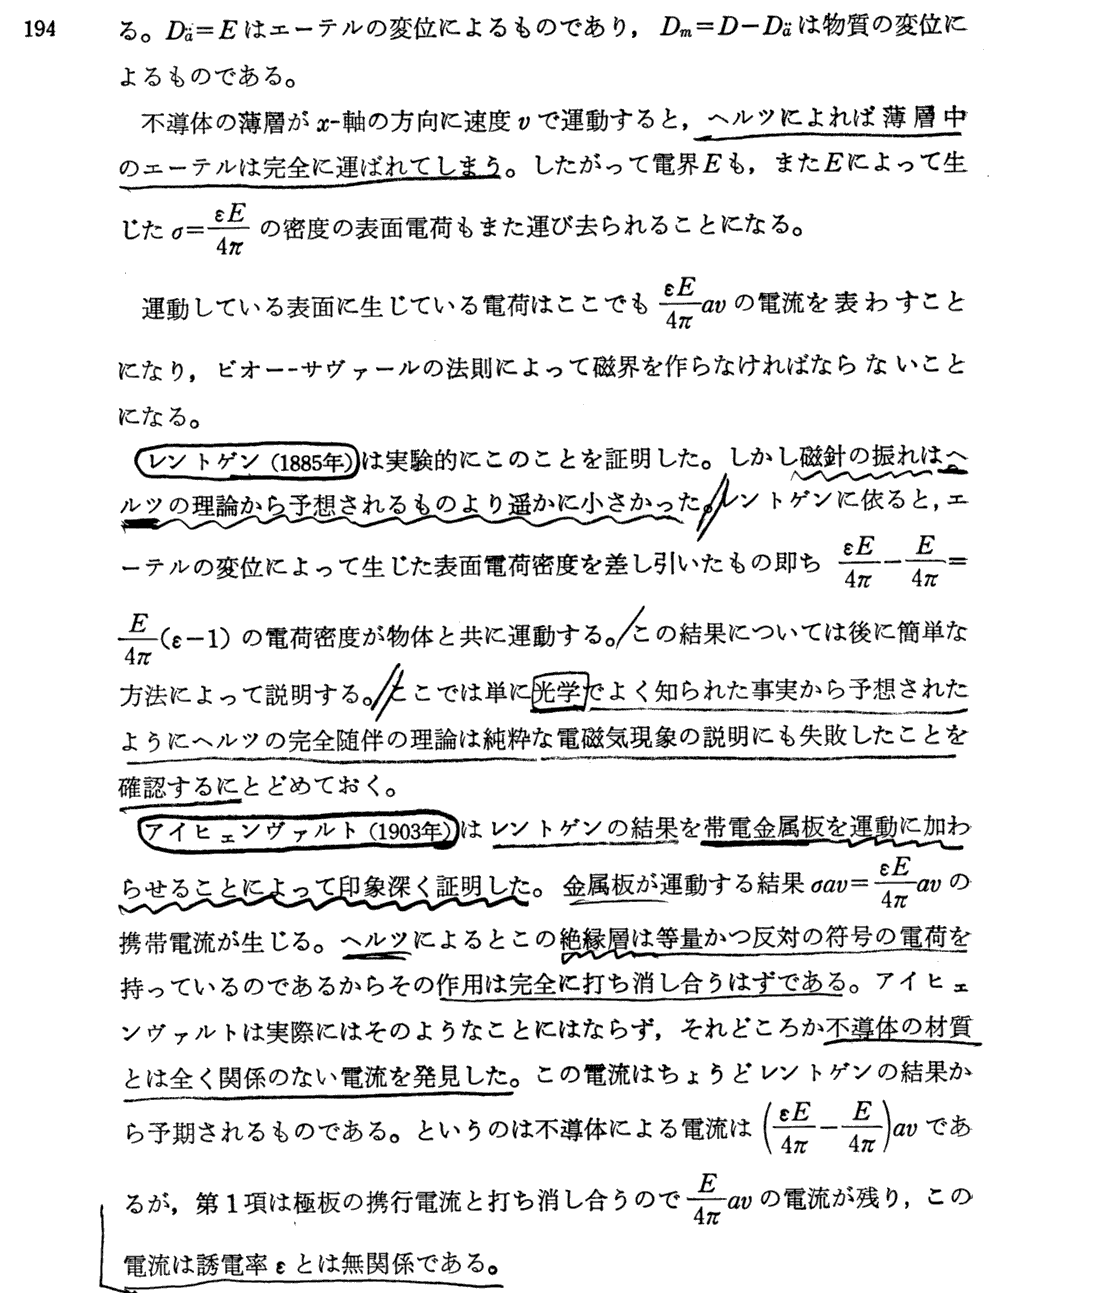 194
る。Dä=Eはエーテルの変位によるものであり，Dm=D−Däは物質の変位に
よるものである。
不導体の薄層がx-軸の方向に速度vで運動すると，ヘルツによれば薄層中
のエーテルは完全に運ばれてしまう。したがって電界Eも，またEによって生
じたσ=εE/4πの密度の表面電荷もまた運び去られることになる。
運動している表面に生じている電荷はここでもεE/4π avの電流を表わすこと
になり，ビオー-サヴァールの法則によって磁界を作らなければならないこと
になる。
レントゲン（1885年）は実験的にこのことを証明した。しかし磁針の振れはヘ
ルツの理論から予想されるものより遥かに小さかった。レントゲンに依ると，エ
ーテルの変位によって生じた表面電荷密度を差し引いたもの即ち εE/4π−E/4π=
E/4π(ε−1)の電荷密度が物体と共に運動する。この結果については後に簡単な
方法によって説明する。ここでは単に光学でよく知られた事実から予想された
ようにヘルツの完全随伴の理論は純粋な電磁気現象の説明にも失敗したことを
確認するにとどめておく。
アイヒェンヴァルト（1903年）はレントゲンの結果を帯電金属板を運動に加わ
らせることによって印象深く証明した。金属板が運動する結果σav=εE/4π avの
携帯電流が生じる。ヘルツによるとこの絶縁層は等量かつ反対の符号の電荷を
持っているのであるからその作用は完全に打ち消し合うはずである。アイヒェ
ンヴァルトは実際にはそのようなことにはならず，それどころか不導体の材質
とは全く関係のない電流を発見した。この電流はちょうどレントゲンの結果か
ら予期されるものである。というのは不導体による電流は(εE/4π−E/4π)avであ
るが，第1項は極板の携行電流と打ち消し合うのでE/4π avの電流が残り，この
電流は誘電率εとは無関係である。